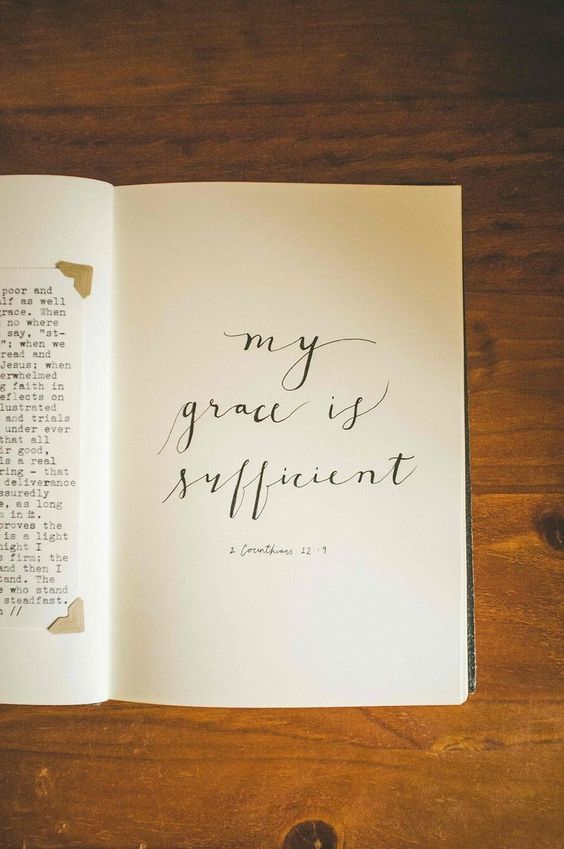 poor and
as well
When
no where
say, "st-
"; when we
read and
Jesus; when
g faith in
on
and trials
under ever
that all
good,
is a real
- that
deliverance
, as long
in it.
the
is a light
I
firm; the
and then I
The
who stand
steadfast.
//
my
grace is
sufficient
2 Corinthians 12:9